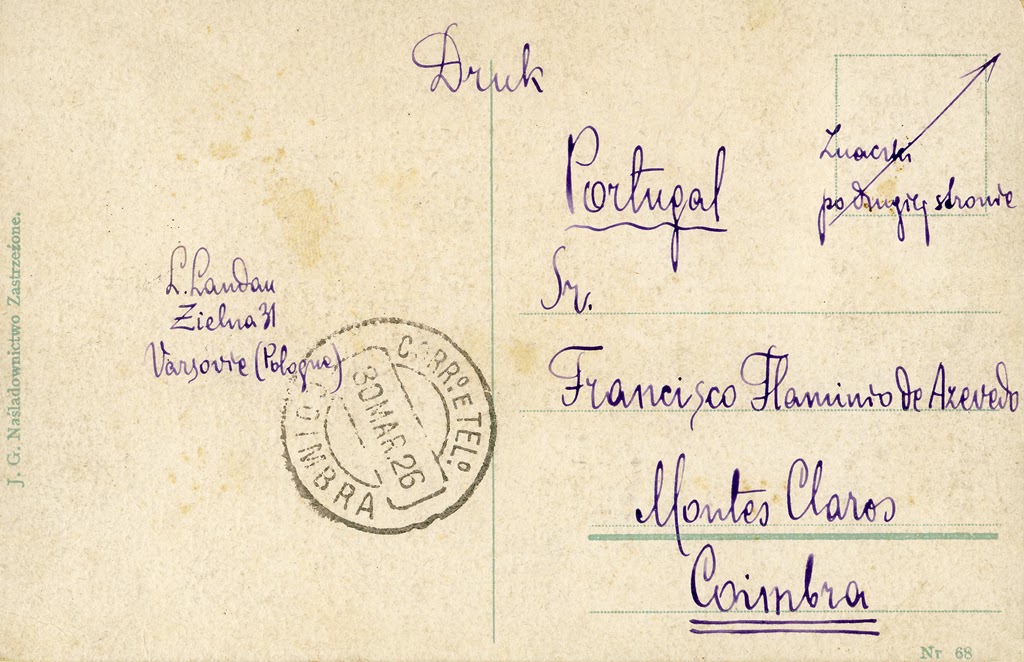 Druk
Portugal
Znaczki
po drugiej stronie
Sr.
Francisco Flaminio de Azevedo
Montes Claros
Coimbra
L. Landau
Zielna 31
Varsovie (Pologne)
CORRº. E TELº.
30 MAR. 26
COIMBRA
J. G. Naśladownictwo Zastrzeżone.
Nr 68